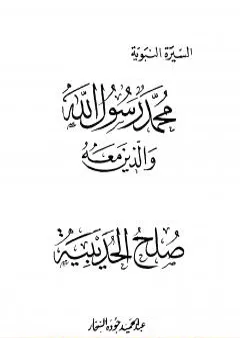 السيرة النبوية
محمد رسول الله
والذين معه
صلح الحديبية
عبد الحميد جوده السحار